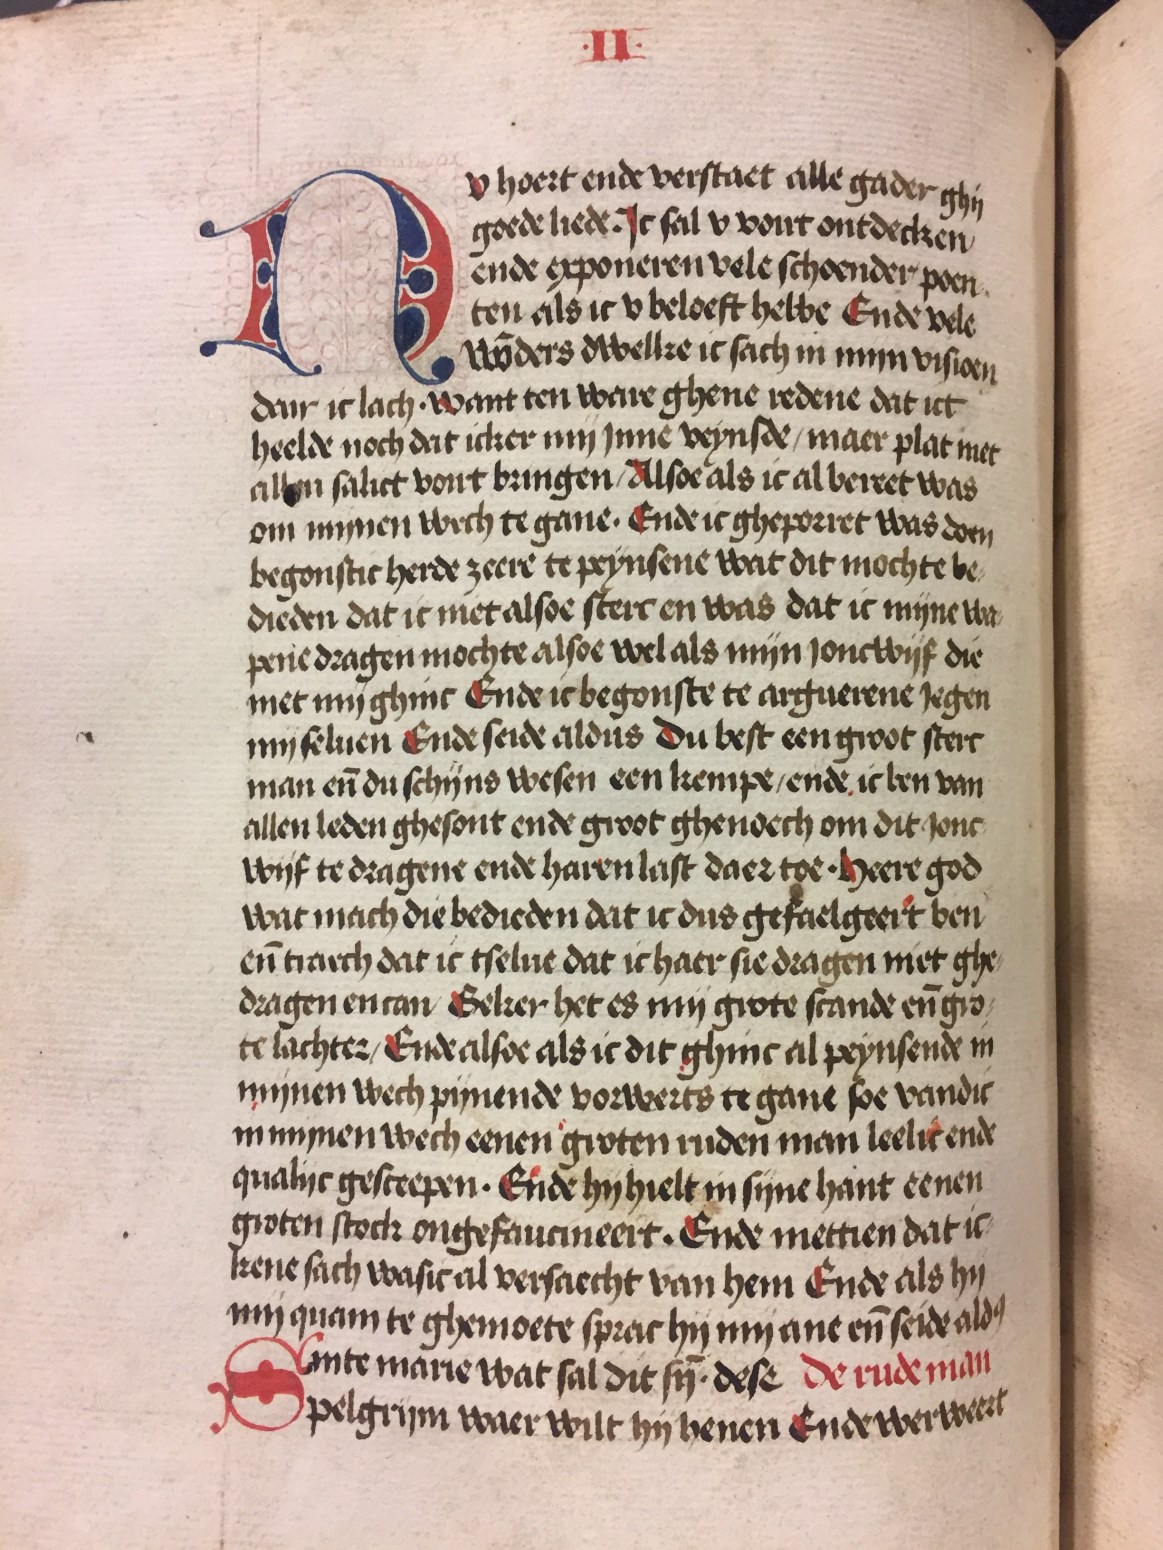 ·II·
Nv hoert ende verstaet alle gader ghij
goede liede. Ic sal v vourt ontdecken
ende exponeren vele schoender poen
ten als ic v beloeft hebbe Ende vele
wōders dwelke ic sach in mijn visioen
dair ic lach. want ten ware ghene redene dat ict
heelde noch dat icker mij Inne veynsde / maer plat met
allen salict vort bringen / Alsoe als ic al bereet was
om mijnen wech te gane. Ende ic gheporret was doen
begonstic herde zeere te peynsene wat dit mochte be
dieden dat ic niet alsoe sterc en was dat ic mijne wa
pene dragen mochte alsoe wel als mijn Joncwijf die
met mij ghinc Ende ic begonste te arguerene Jegen
mij seluen Ende seide aldus Du best een groot sterc
man en̄ du schijns wesen een kempe / ende ic ben van
allen leden ghesont ende groot ghenoech om dit Jonc
wijf te dragene ende haren last daer toe. Heere god
wat mach die bedieden dat ic dus gefaelgeert ben
en̄ traech dat ic tselue dat ic haer sie dragen niet ghe
dragen en can Seker het es mij grote scande en̄ gro
te lachter / Ende alsoe als ic dit ghinc al peynsende in
mijnen wech pijnende vorwerts te gane soe vandic
in mijnen wech eenen groten ruden man leelic ende
qualijc gesceepen. Ende hij hielt in sijne hant eenen
groten stock ongefaucineert. Ende mettien dat ic
kene sach wasic al versaecht van hem Ende als hij
mij quam te ghemoete sprac hij mij ane en̄ seide aldꝰ
Sinte marie wat sal dit sij̄. dese De rude man
pelgrijm waer wilt hij henen Ende werweert